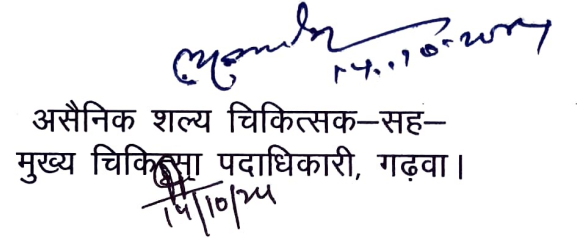 14.10.2024
असैनिक शल्य चिकित्सक–सह–
मुख्य चिकित्सा पदाधिकारी, गढ़वा।
14/10/24